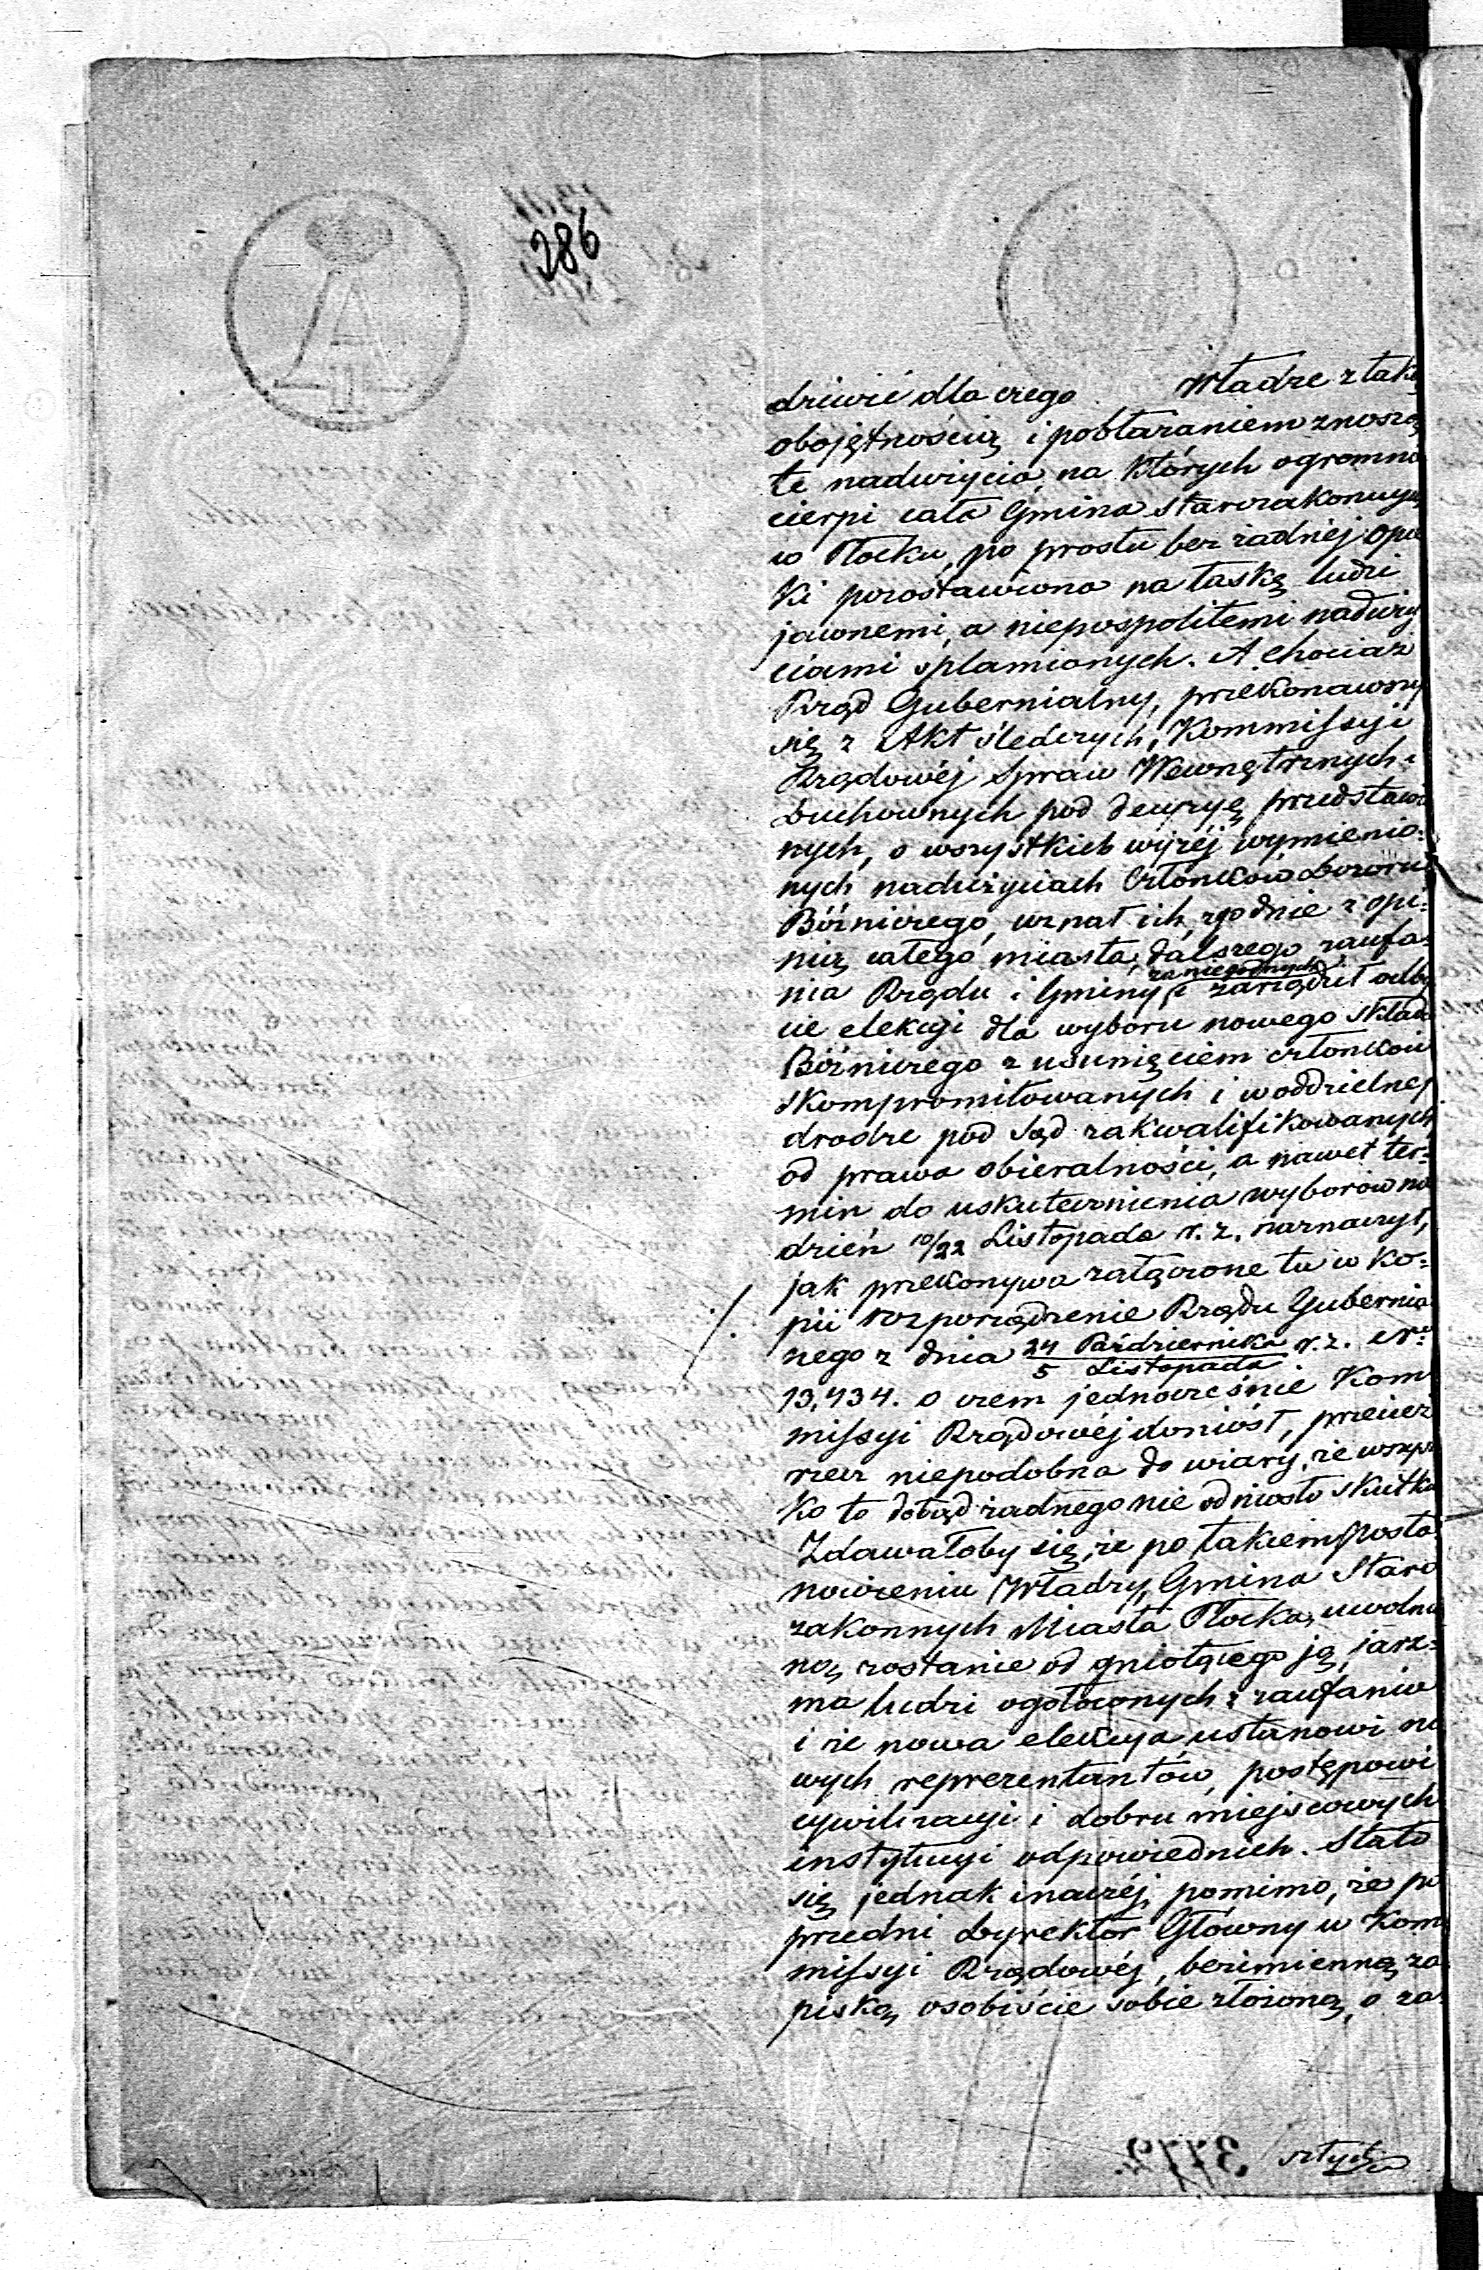 286
dziwić dla czego Władze z taką
obojętnością i pobłażaniem znoszą
te nadużycia, na których ogromnie
cierpi cała Gmina starozakonnych
w Płocku, po prostu bez żadnéj opie
ki pozostawiona na łaskę ludzi
jawnemi, a niepospolitemi naduży
ciami splamionych. A chociaż
Rząd Gubernialny, przekonawszy
się z Akt śledczych, Kommissyi
Rządowéj Spraw Wewnętrznych i
Duchownych pod decyzyę przedstawio
nych, o wszystkich wyżéj wymienio-
nych nadużyciach Członków Dozoru
Bóżniczego, uznał ich, zgodnie z opi-
nią całego miasta, dalszego zaufa-
za niegodnych
nia Rządu i Gminy, i zarządził odby
cie elekcyi dla wyboru nowego składu
Bóżniczego z usunięciem członków
skompromitowanych i w oddzielnej
drodze pod sąd zakwalifikowanych
od prawa obieralności, a nawet ter-
min do uskutecznienia wyborów na
dzień 10/22 Listopada r. z. naznaczył,
jak przekonywa załączone tu w ko-
pii rozporządzenie Rządu Gubernial
nego z dnia 24 Października / 5 Listopada r. z. Nr
13,434. o czem jednocześnie Kom
missyi Rządowéj doniósł, przecież
rzecz niepodobna do wiary, że wszyst
ko to dotąd żadnego nie odniosło skutku
Zdawałoby się, że po takiem posta
nowieniu Władzy, Gmina Staro
zakonnych Miasta Płocka, uwolnio
ną zostanie od gniotącego ją, jarz-
ma ludzi ogołoconych z zaufania
i że nowa elekcya ustanowi no
wych reprezentantów, postępowi
cywilizacyi i dobru miejscowych
instytucyi odpowiednich. Stało
się jednak inaczéj, pomimo, że po
przedni Dyrektor Główny w Kom
missyi Rządowéj, bezimienną za
piską osobiście sobie złożoną, o za-